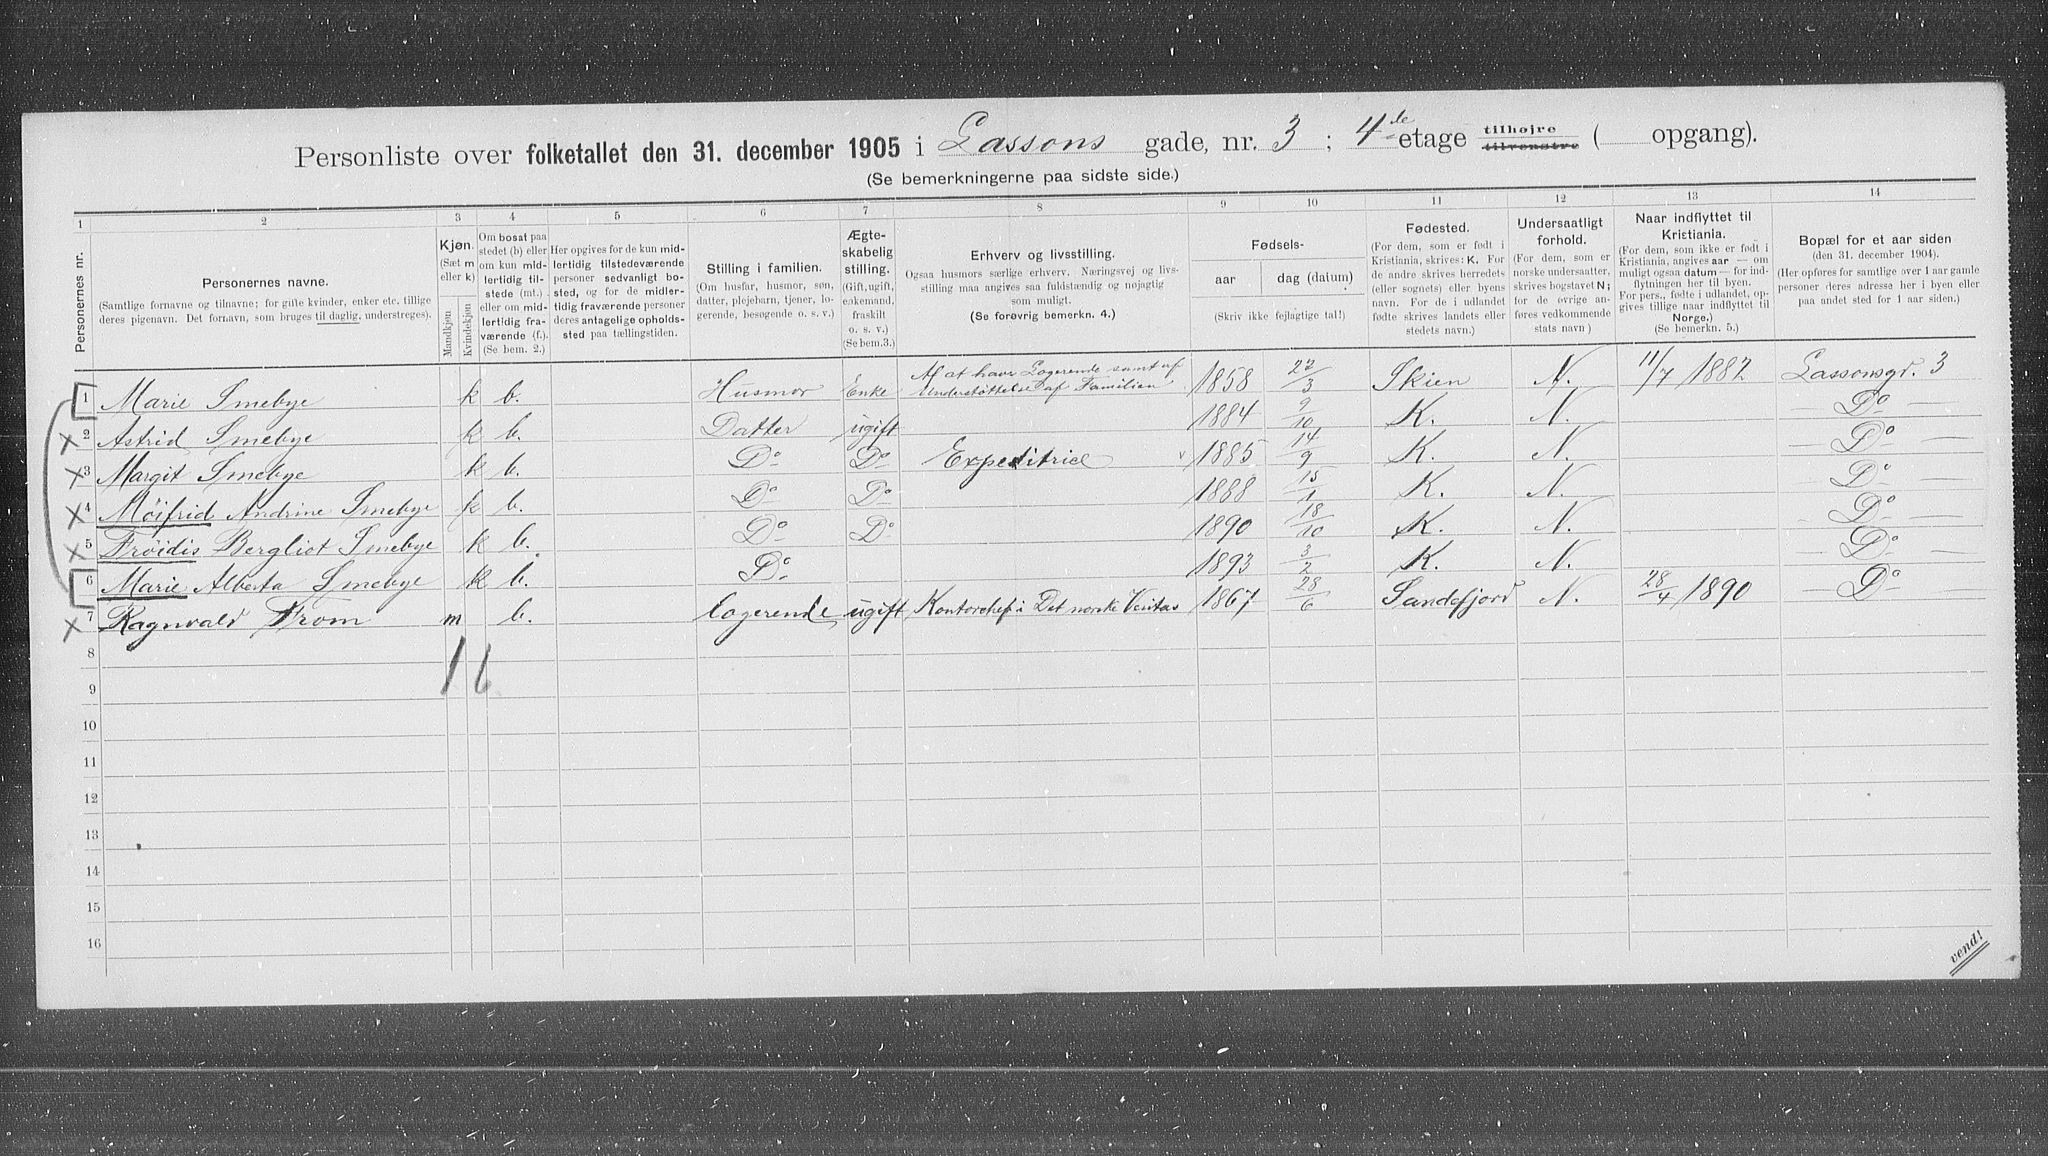 Personliste over folketallet den 31. december 1905 i Lassons gade, nr. 3 ; 4de etage tilhøjre tilvenstre ( opgang).
(Se bemerkningerne paa sidste side.)
1 2 3 4 5 6 7 8 9 10 11 12 13 14
Personernes nr.
Personernes navne.
(Samtlige fornavne og tilnavne; for gifte kvinder, enker etc. tillige
deres pigenavn. Det fornavn, som bruges til daglig, understreges).
Kjøn.
(Sæt m
eller k)
Mandkjøn
Kvindekjøn
Om bosat paa
stedet (b) eller
om kun mid-
lertidig til-
stede (mt.)
eller om mid-
lertidig fra-
værende (f.).
(Se bem. 2.)
Her opgives for de kun mid-
lertidig tilstedeværende
personer sedvanlig bo-
sted, og for de midler-
tidig fraværende personer
deres antagelige opholds-
sted paa tællingstiden.
Stilling i familien.
(Om husfar, husmor, søn,
datter, plejebarn, tjener, lo-
gerende, besøgende o. s. v.)
Ægte-
skabelig
stilling.
(Gift, ugift,
enkemand,
fraskilt
o. s. v.)
(Se bem.3.)
Erhverv og livsstilling.
Ogsaa husmors særlige erhverv. Næringsvej og livs-
stilling maa angives saa fuldstændig og nøjagtig
som muligt.
(Se forøvrig bemerkn. 4.)
Fødsels-
aar
dag (datum)
(Skriv ikke fejlagtige tal!)
Fødested.
(For dem, som er født i
Kristiania, skrives: K. For
de andre skrives herredets
(eller sognets) eller byens
navn. For de i udlandet
fødte skrives landets eller
stedets navn.)
Undersaatligt
forhold.
(For dem, som er
norske undersaatter,
skrives bogstavet N;
for de øvrige an-
føres vedkommende
stats navn)
Naar indflyttet til
Kristiania.
(For dem, som ikke er født i
Kristiania, angives aar — om
muligt ogsaa datum — for ind-
flytningen her til byen.
For pers., fødte i udlandet, op-
gives tillige naar indflyttet til
Norge.)
(Se bemerkn. 5.)
Bopæl for et aar siden
(den 31. december 1904).
(Her opføres for samtlige over 1 aar gamle
personer deres adresse her i byen eller
paa andet sted for 1 aar siden.)
1 Marie Smebye k b. Husmor Enke Af at have Logerende samt af Understøttelse af Familien 1858 22/3 Skien N. 11/7 1882 Lassonsgd. 3
2 Astrid Smebye k b. Datter ugift 1884 9/10 K. N. — Do —
3 Margit Smebye k b. Do Do Expeditrice 1885 14/9 K. N. — Do —
4 Möifrid Andrine Smebye k b. Do Do 1888 15/1 K. N. — Do —
5 Fröidis Bergliot Smebye k b. Do Do 1890 18/10 K. N. — Do —
6 Marie Alberta Smebye k b. Do 1893 3/2 K. N. — Do —
7 Ragnvald From m b. logerende ugift Kontorchef i Det norske Veritas 1867 28/6 Sandefjord N. 28/4 1890 — Do —
8 1 6
9
10
11
12
13
14
15
16
vend!